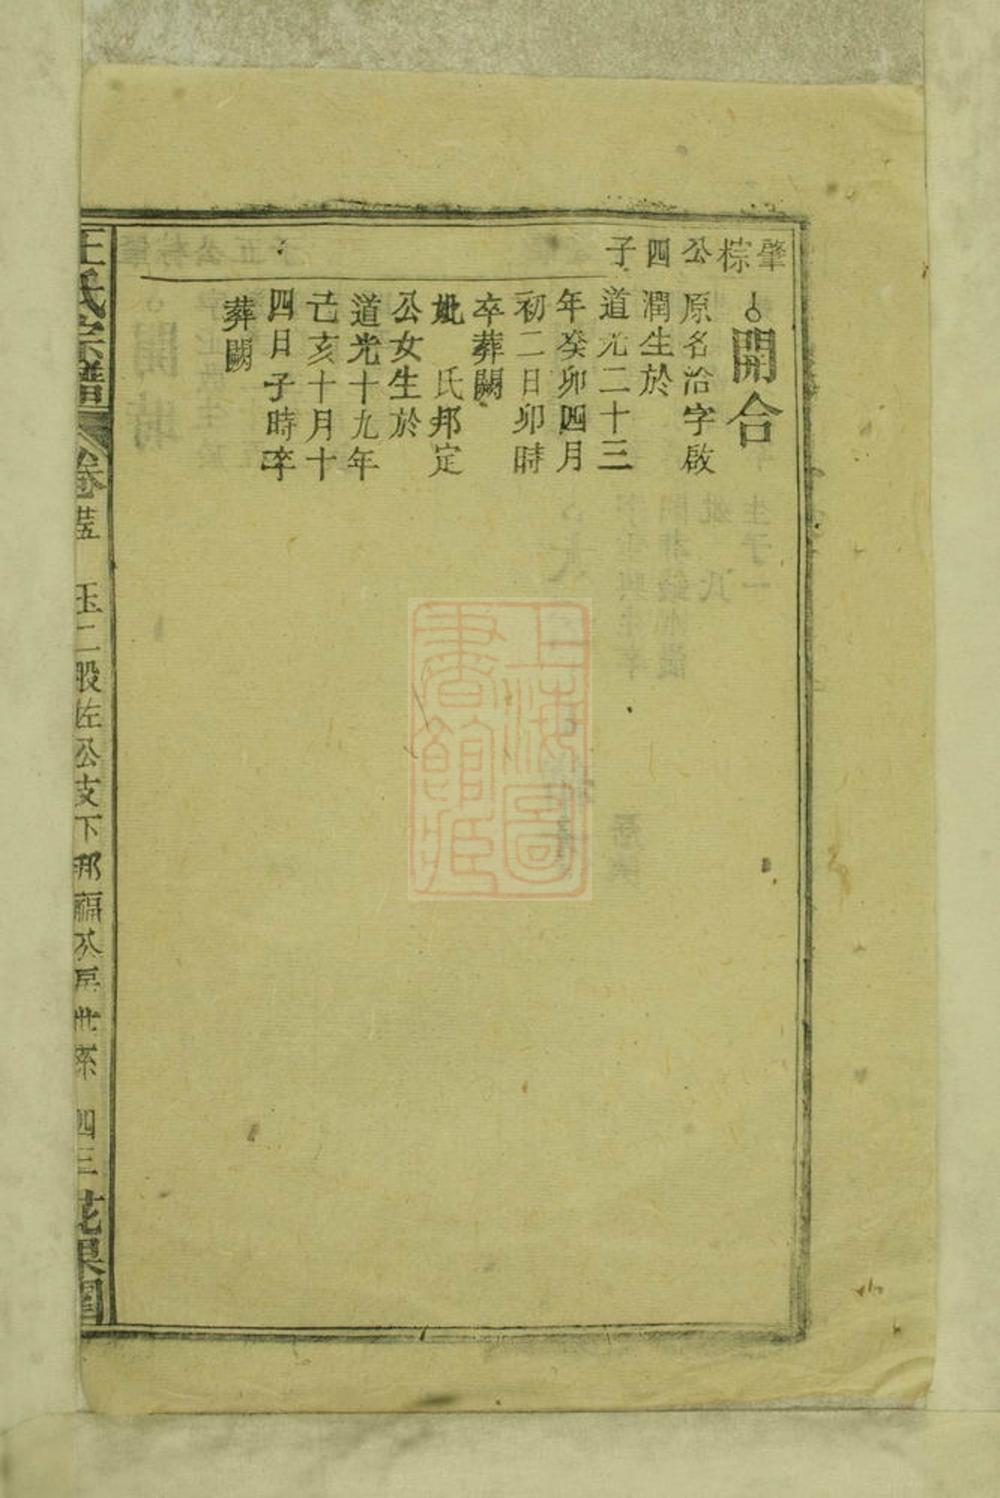 肇
棕
公
四
子
開合
原名洽字啟
潤生於
道光二十三
年癸卯四月
初二日卯時
卒葬闕
妣 氏邦定
公女生於
道光十九年
己亥十月十
四日子時卒
葬闕
王氏宗譜 卷 五 二股佐公支下邦福公房世系 四三 花果園
上海圖
書館藏